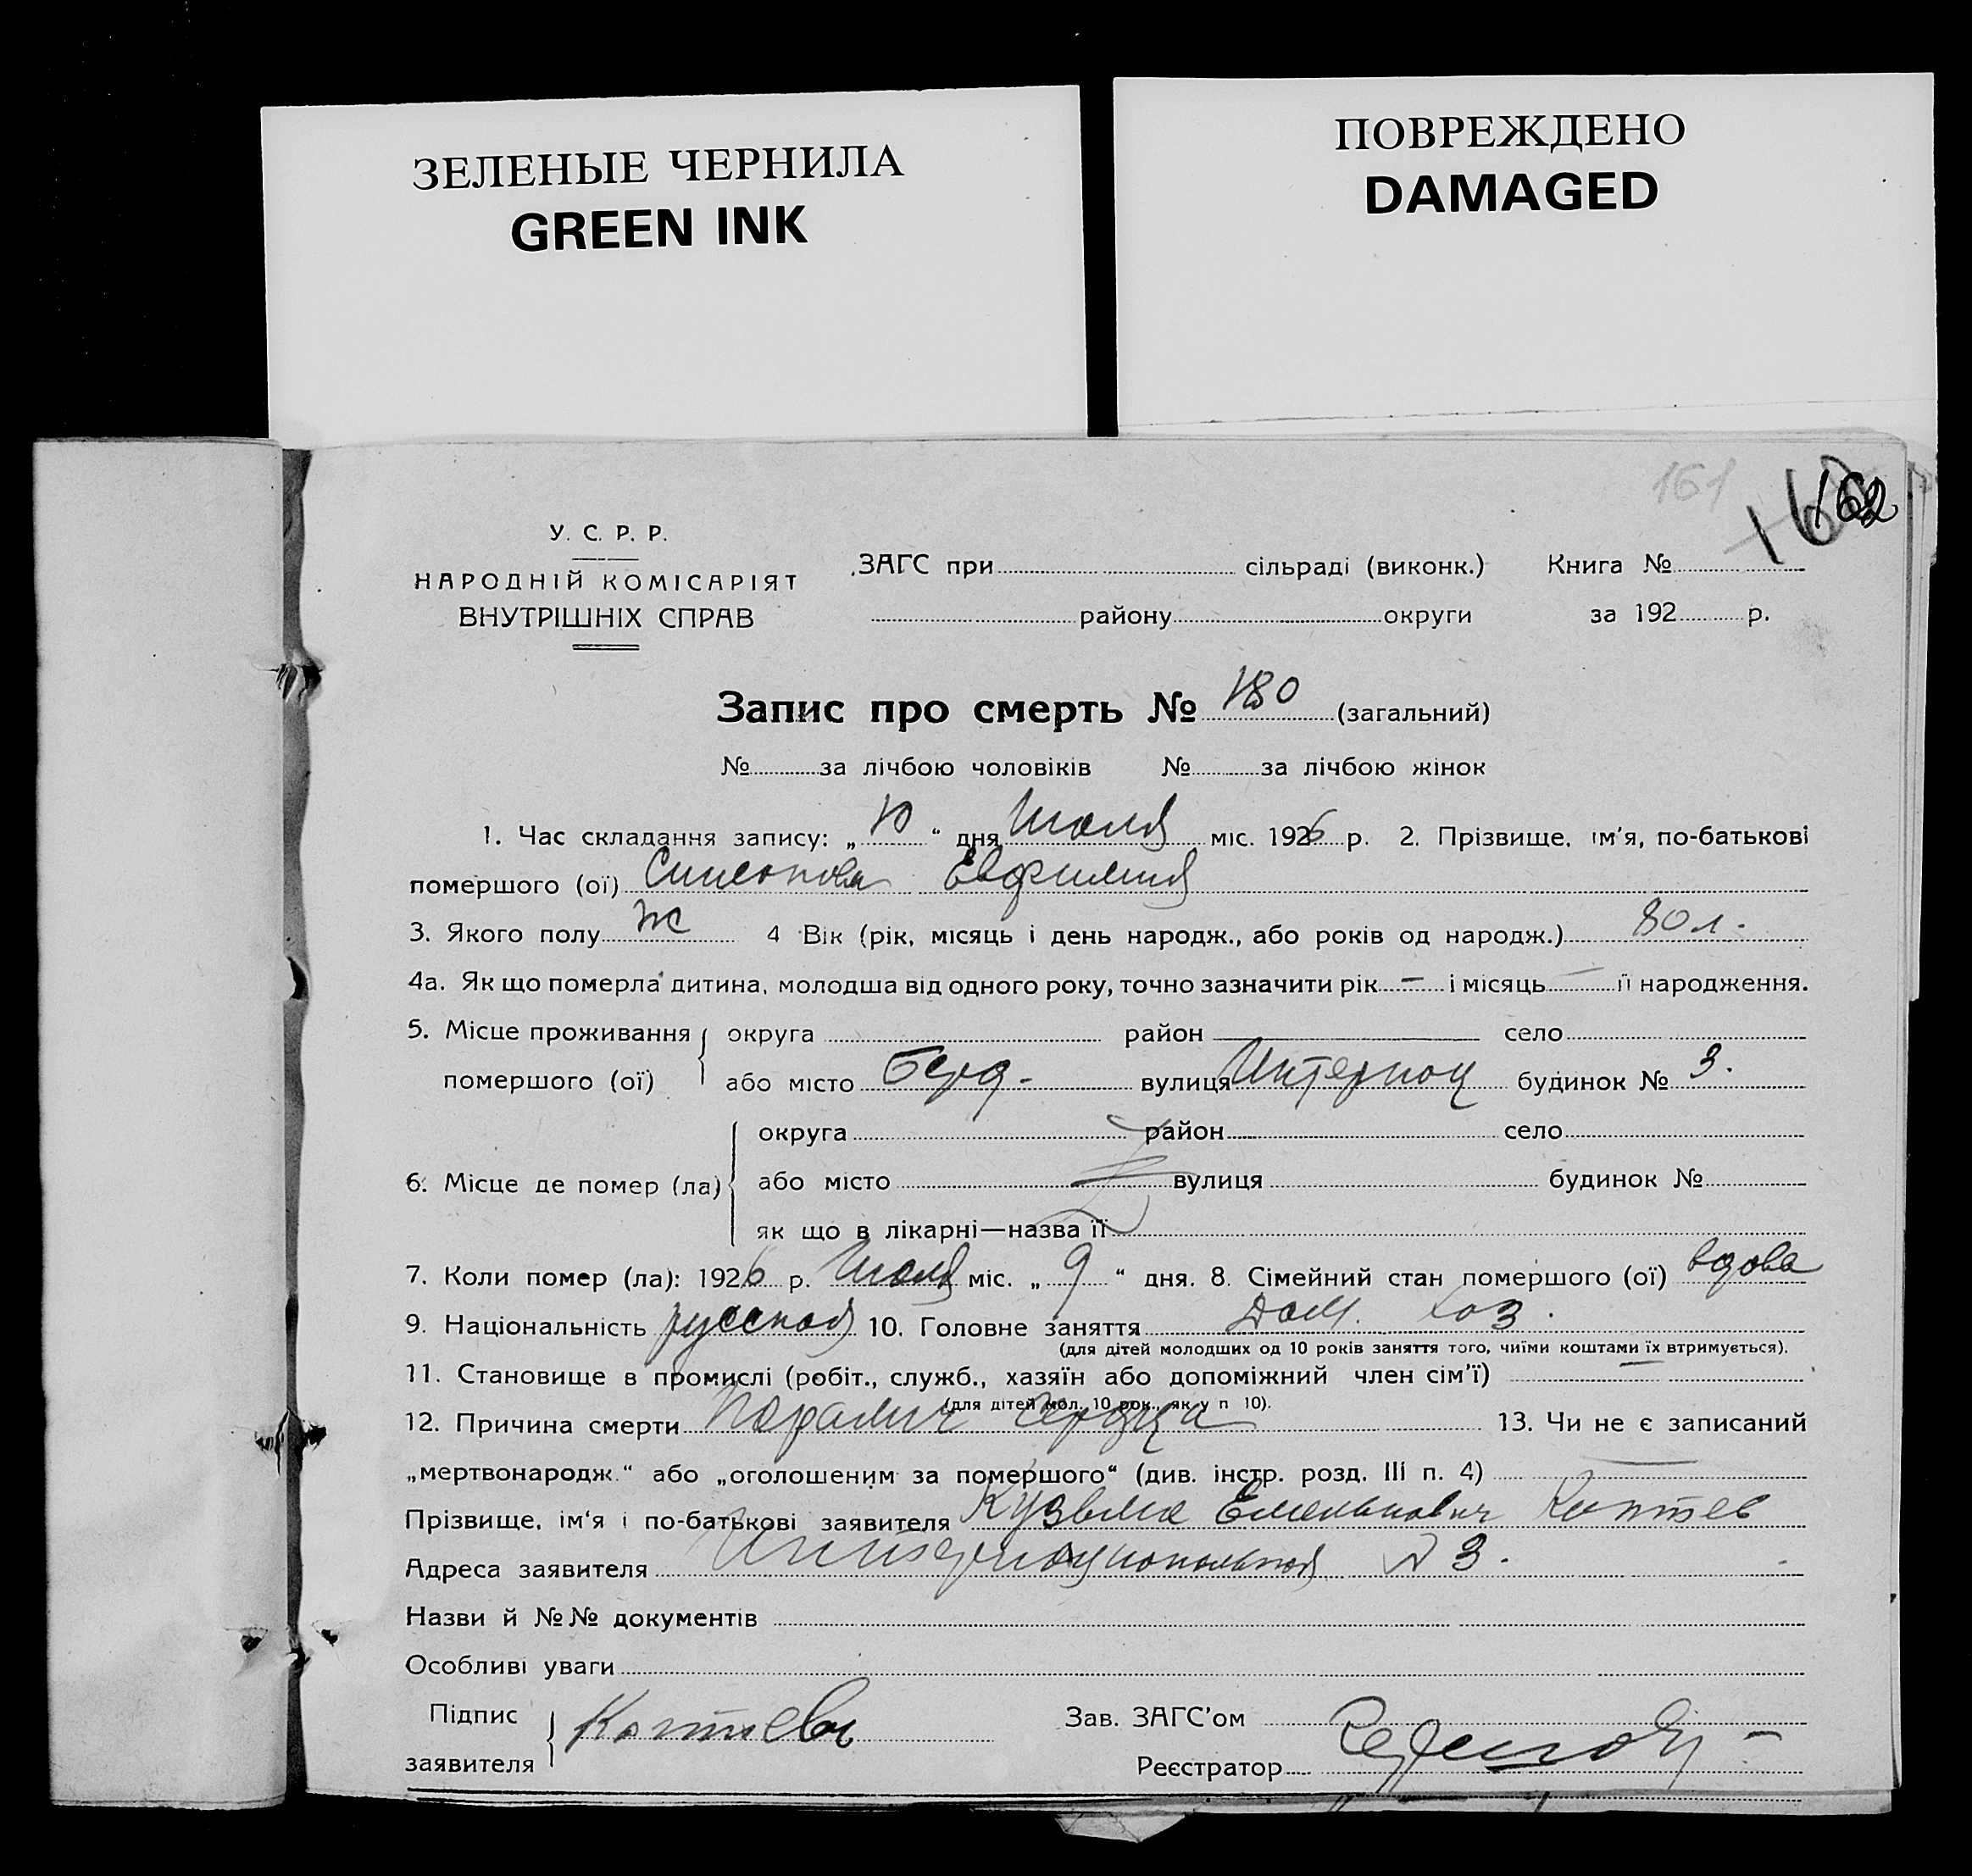 ЗЕЛЕНЫЕ ЧЕРНИЛА
GREEN INK
ПОВРЕЖДЕНО
DAMAGED
161
162
У. С. Р. Р.
НАРОДНІЙ КОМІСАРІЯТ
ВНУТРІШНІХ СПРАВ
ЗАГС при сільраді (виконк.) Книга №
району округи за 192 р.
Запис про смерть № 180 (загальний)
№ за лічбою чоловіків № за лічбою жінок
1. Час складання запису: „10“ дня Июля міс. 1926 р. 2. Прізвище, ім'я, по-батькові
помершого (ої) Евфимия
3. Якого полу Ж 4 Вік (рік, місяць і день народж., або років од народж.) 80 л.
4а. Як що померла дитина, молодша від одного року, точно зазначити рік — і місяць — її народження.
5. Місце проживання округа район село
помершого (ої) або місто Берд. вулиця Интернац будинок № 3.
округа район село
6. Місце де помер (ла) або місто вулиця будинок №
як що в лікарні—назва її
7. Коли помер (ла): 1926 р. Июля міс. „9“ дня. 8. Сімейний стан помершого (ої) вдова
9. Національність русская 10. Головне заняття Дом. хоз.
(для дітей молодших од 10 років заняття того, чиїми коштами їх втримується).
11. Становище в промислі (робіт., служб., хазяїн або допоміжний член сім'ї) —
(для дітей мол. 10 рок., як у п 10).
12. Причина смерти Паралич сердца 13. Чи не є записаний
„мертвонародж.“ або „оголошеним за помершого“ (див. інстр. розд. III п. 4) —
Прізвище, ім'я і по-батькові заявителя Кузьма Емельянович Коптев
Адреса заявителя Интернациональная д 3.
Назви й №№ документів
Особливі уваги
Підпис Коптевъ Зав. ЗАГС'ом
заявителя Реєстратор